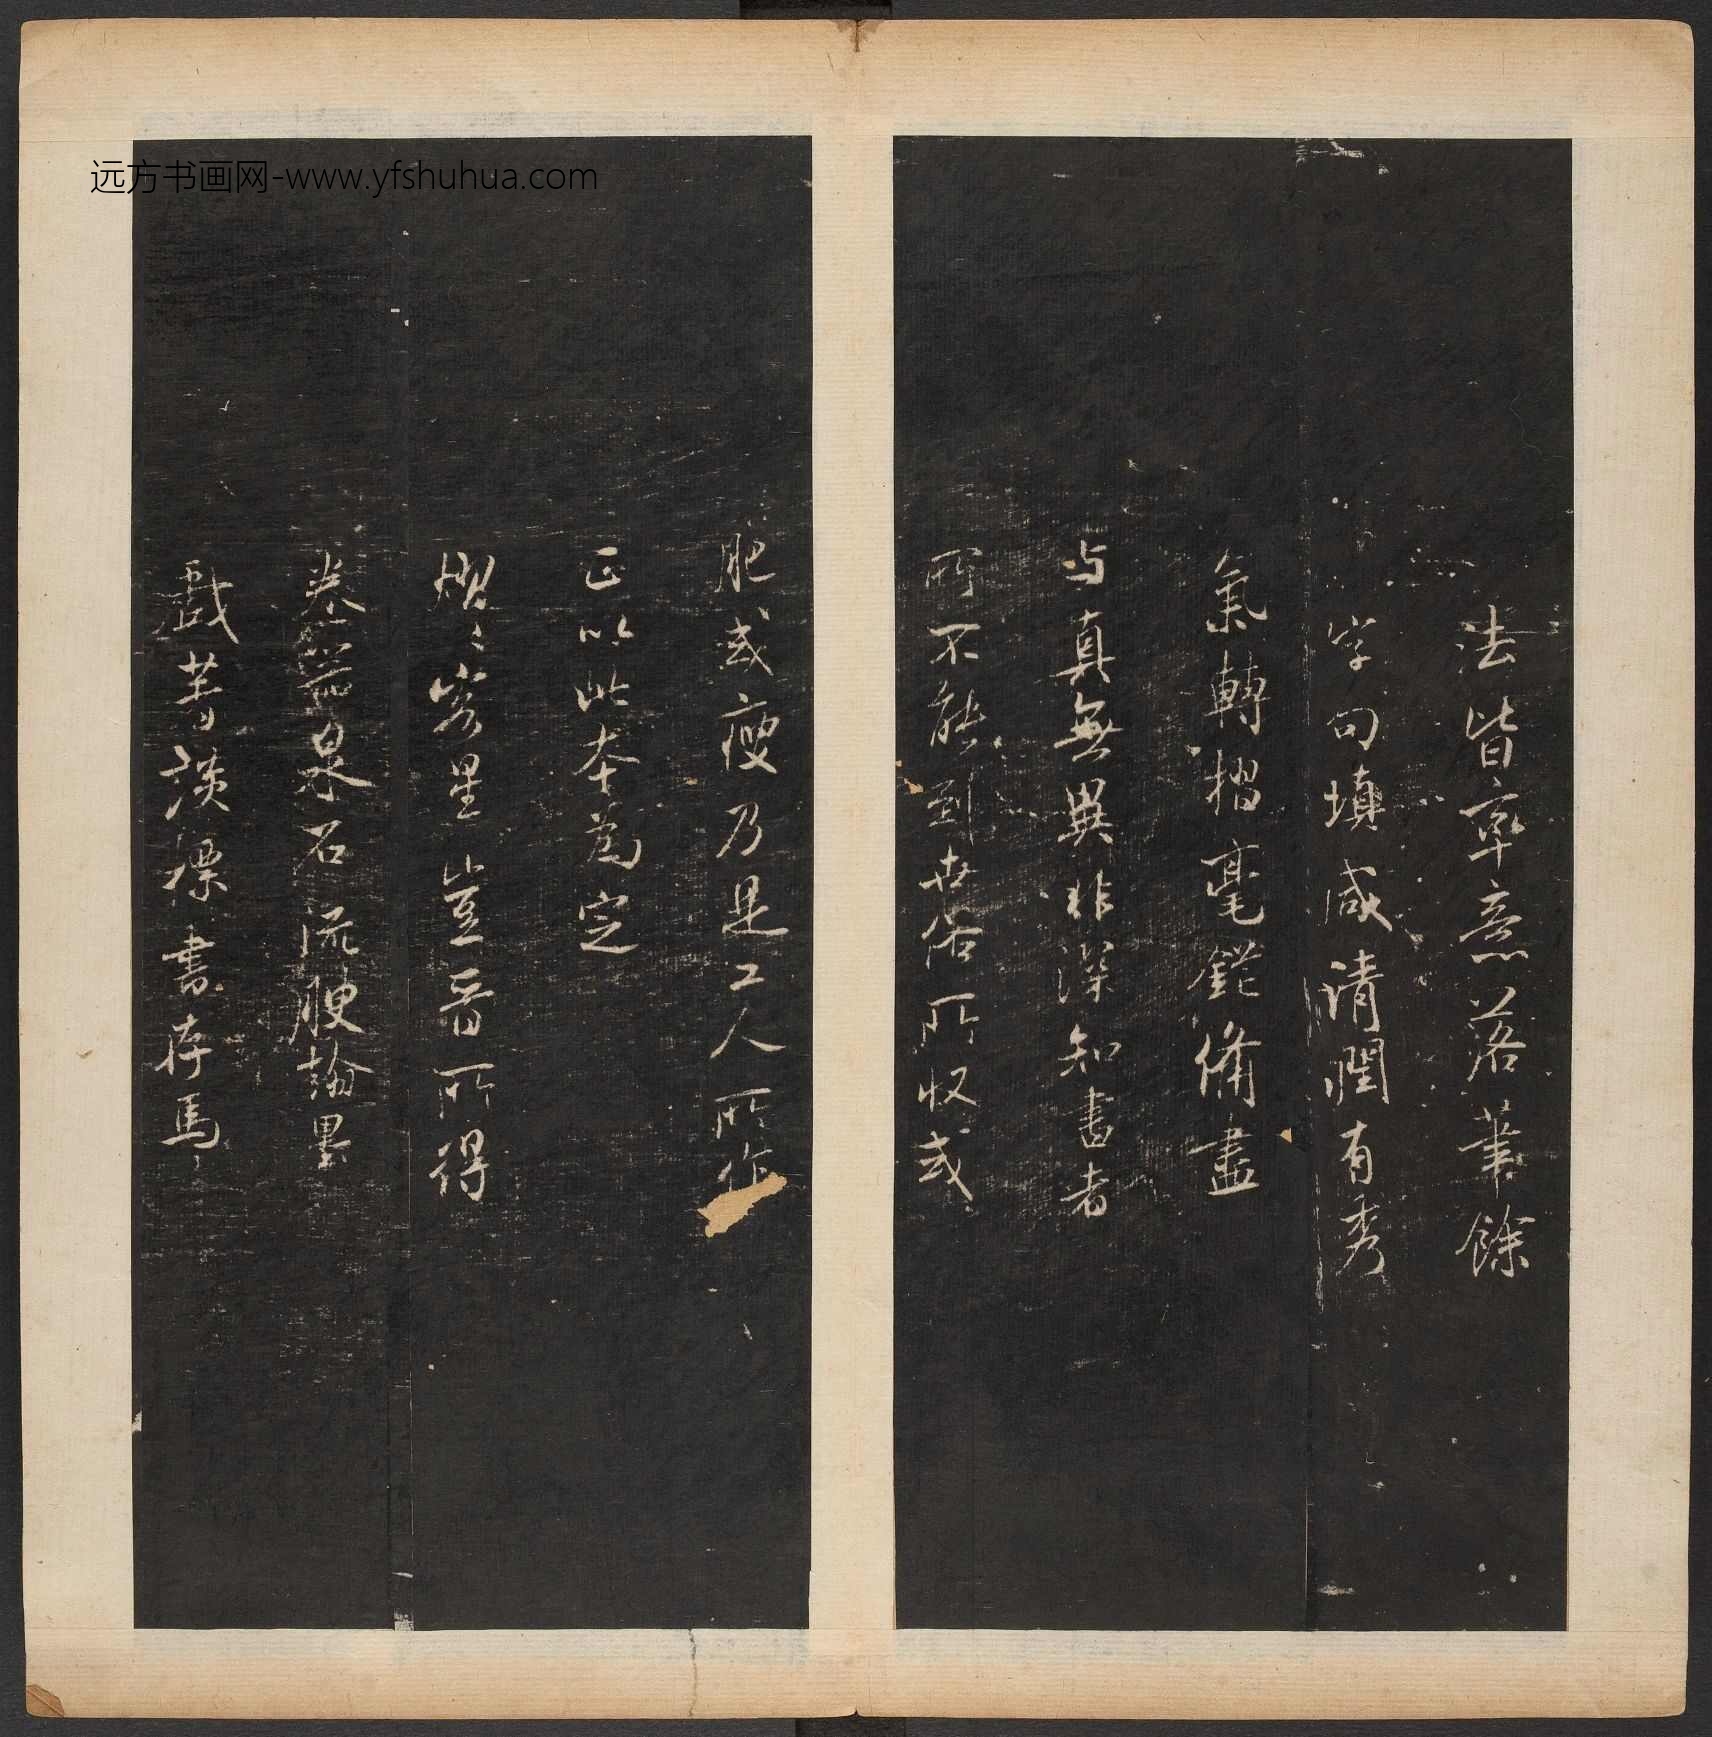 远方书画网-www.yfshuhua.com
法皆率意落筆餘
字勾填咸清潤有秀
氣轉摺毫鋩備盡
与真無異非深知書者
所不能到世俗所收或
肥或瘦乃是工人所作
正以此本為定
熠〻客星豈晉所得
養器泉石流腴翰墨
戲著談標書存馬